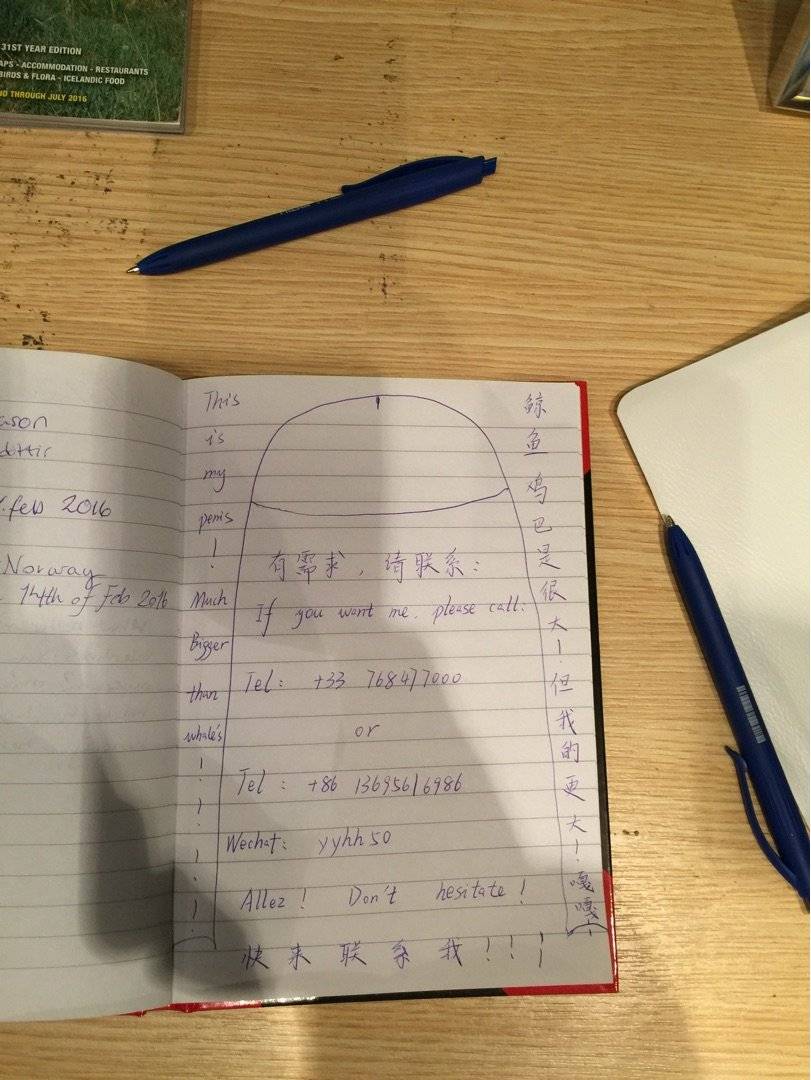 31ST YEAR EDITION
APS - ACCOMMODATION - RESTAURANTS
BIRDS & FLORA - ICELANDIC FOOD
ND THROUGH JULY 2016
ason
dottir
feb 2016
Norway
14th of Feb 2016
This
is
my
penis
!
Much
Bigger
than
whale's
!
!
!
!
有需求，请联系：
If you want me, please call:
Tel: +33 768477000
or
Tel: +86 13695616986
Wechat: yyhh50
Allez! Don't hesitate!
快来联系我！！！
鲸鱼鸡巴是很大！但我的更大！嘎嘎！